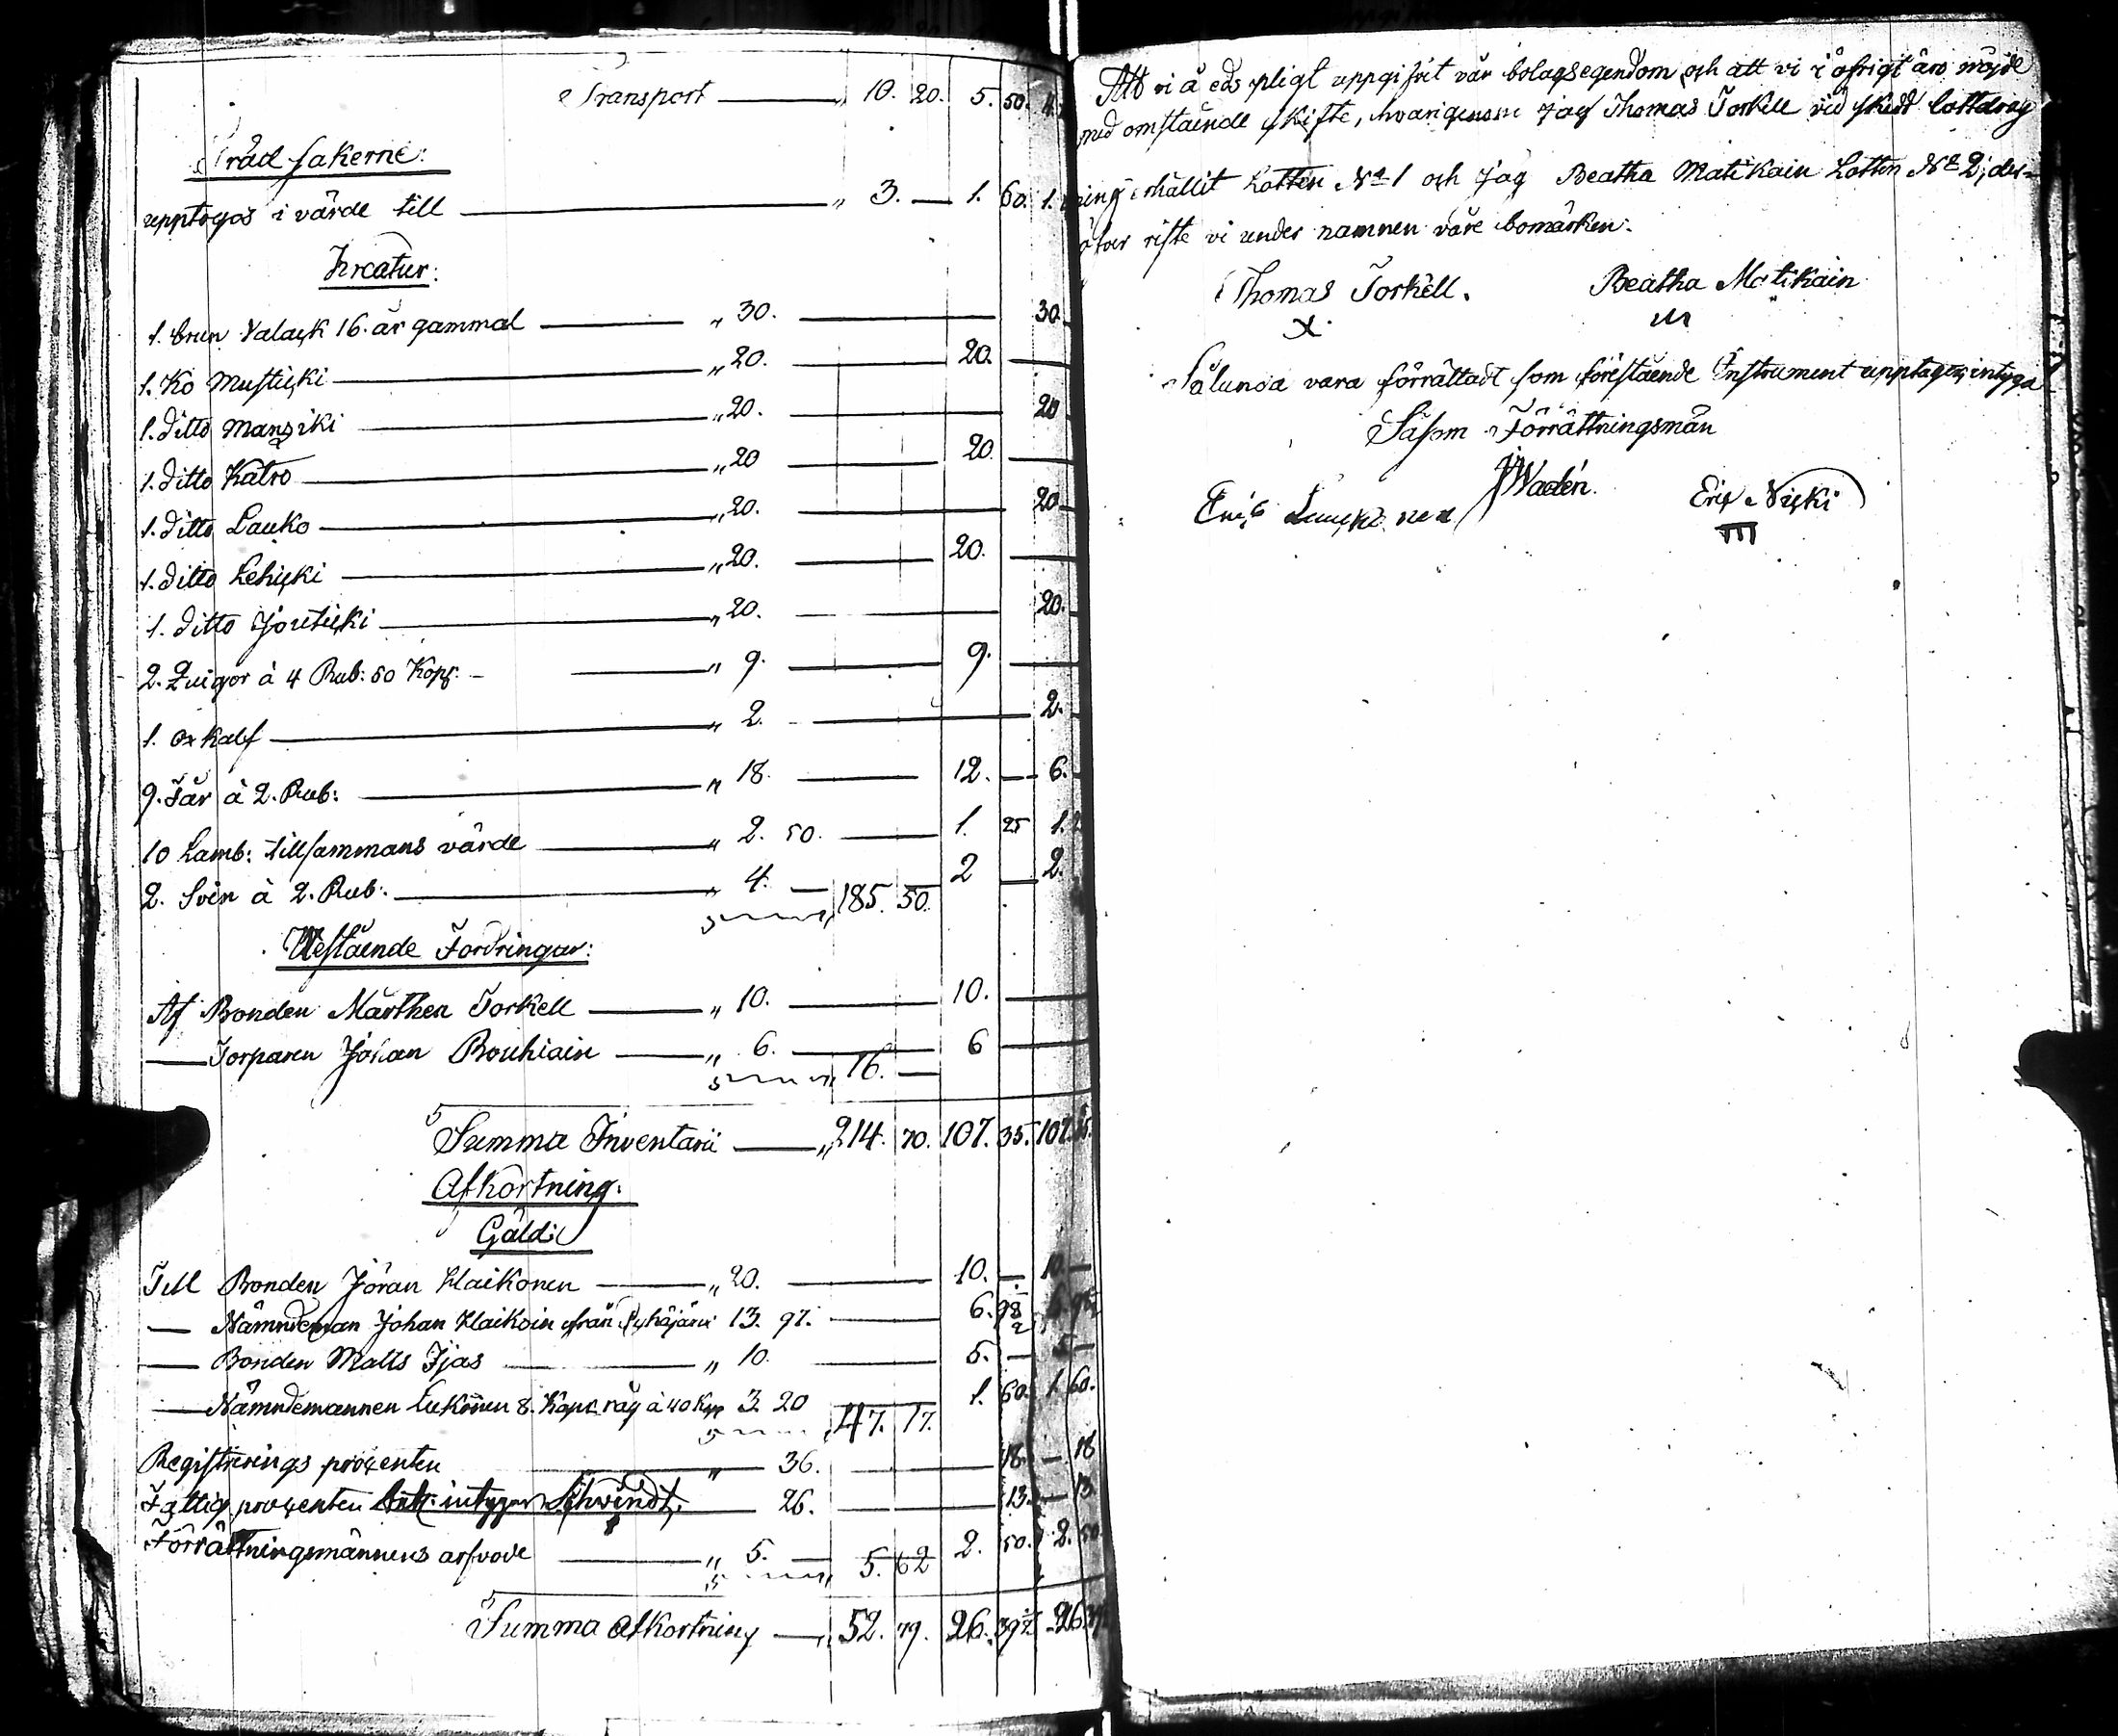 Transport — " 10. 20. 5. 50. 4.
Trädsakerne:
upptogos i värde till — " 3. — 1. 60. 1.
Kreatur:
1. brun Valack 16. år gammal — " 30. — 30.
1. Ko Musticki — " 20. — 20. —
1. ditto Mansiki — " 20. — 20
1. ditto Katro — " 20 — 20. —
1. ditto Lauko — " 20. — 20.
1. ditto Lehicki — " 20. — 20. —
1. ditto Jouticki — " 20. — 20.
2. Quigor à 4 Rub: 50 Kop: — " 9. — 9. —
1. oxkalf — " 2. — 2.
9. Får à 2. Rub: — " 18. — 12. — 6.
10 Lamb: tillsammans värde — " 2. 50. — 1. 25 1. 2
2. Svin à 2. Rub: — " 4. — 185. 50. 2 — 2.
Utestående Fordringar:
Af Bonden Mårthen Torkell — " 10. — 10. —
— Torparen Johan Rouhiain — " 6. — 16. — 6 —
Summa Inventarii — " 214. 70. 107. 35. 107. 35.
Afkortning.
Gäld:
Till Bonden Jöran Haikonen — " 20. — 10. — 10. —
— Nämndeman Johan Haikoin från Pyhäjärvi 13. 97. — 6. 98 1/2 6. 98 1/2
— Bonden Matts Ijas — " 10. — 5. — 5 —
— Nämndemannen Lukonen 8. Kapr råg à 40 Kop 3. 20 47. 17. 1. 60. 1. 60.
Registrerings procenten — " 36. — 18. — 18
Fattig procenten intygar Schvindt. — 26. — 13. — 13
Förrättningsmännens arfvode — " 5. — 5. 62 2. 50. 2. 50
Summa Afkortning — " 52. 79. 26. 39 1/2 26. 39
Att vi å eds pligt uppgifvit vår bolagsegendom och att vi i öfrigt äro nöjde
med omstående skifte, hvarigenom jag Thomas Torkell vid skedd lottdrag
ning erhållit Lotten No 1 och jag Beatha Matikain Lotten No 2; der-
öfver riste vi under namnen våre bomärken.
Thomas Torkell. Beatha Matikain
Sålunda vara förrättadt som förestående Instrument upptager, intyga
Såsom Förrättningsmän
JWadén. Eric Nicki
Eric